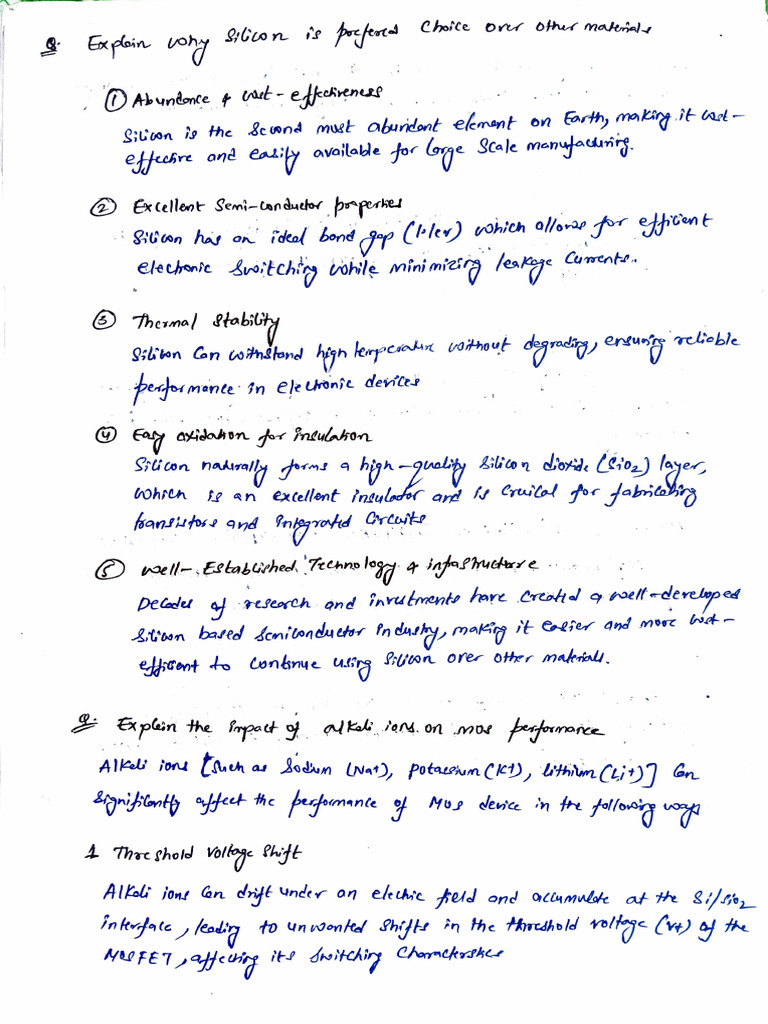 Q. Explain why Silicon is prefered choice over other materials
① Abundance & cost-effectiveness
Silicon is the second most abundant element on Earth, making it cost-
effective and easily available for large scale manufacturing.
② Excellent Semi-conductor properties
Silicon has an ideal band gap (1.1ev) which allows for efficient
electronic switching while minimizing leakage currents.
③ Thermal Stability
Silicon can withstand high temperature without degrading, ensuring reliable
performance in electronic devices
④ Easy oxidation for insulation
Silicon naturally forms a high-quality silicon dioxide (SiO2) layer,
which is an excellent insulator and is cruical for fabricating
transistors and integrated circuits
⑤ Well-Established Technology & infrastructure
Decades of research and investments have created a well-developed
silicon based semiconductor industry, making it easier and more cost-
efficient to continue using silicon over other materials.
Q. Explain the impact of alkali ions on mos performance
Alkali ions [such as Sodium (Na+), potassium (K+), lithium (Li+)] can
significantly affect the performance of MOS device in the following ways
1 Threshold voltage shift
Alkali ions can drift under an electric field and accumulate at the Si/SiO2
interface, leading to unwanted shifts in the threshold voltage (Vt) of the
MOSFET, affecting its switching characteristics